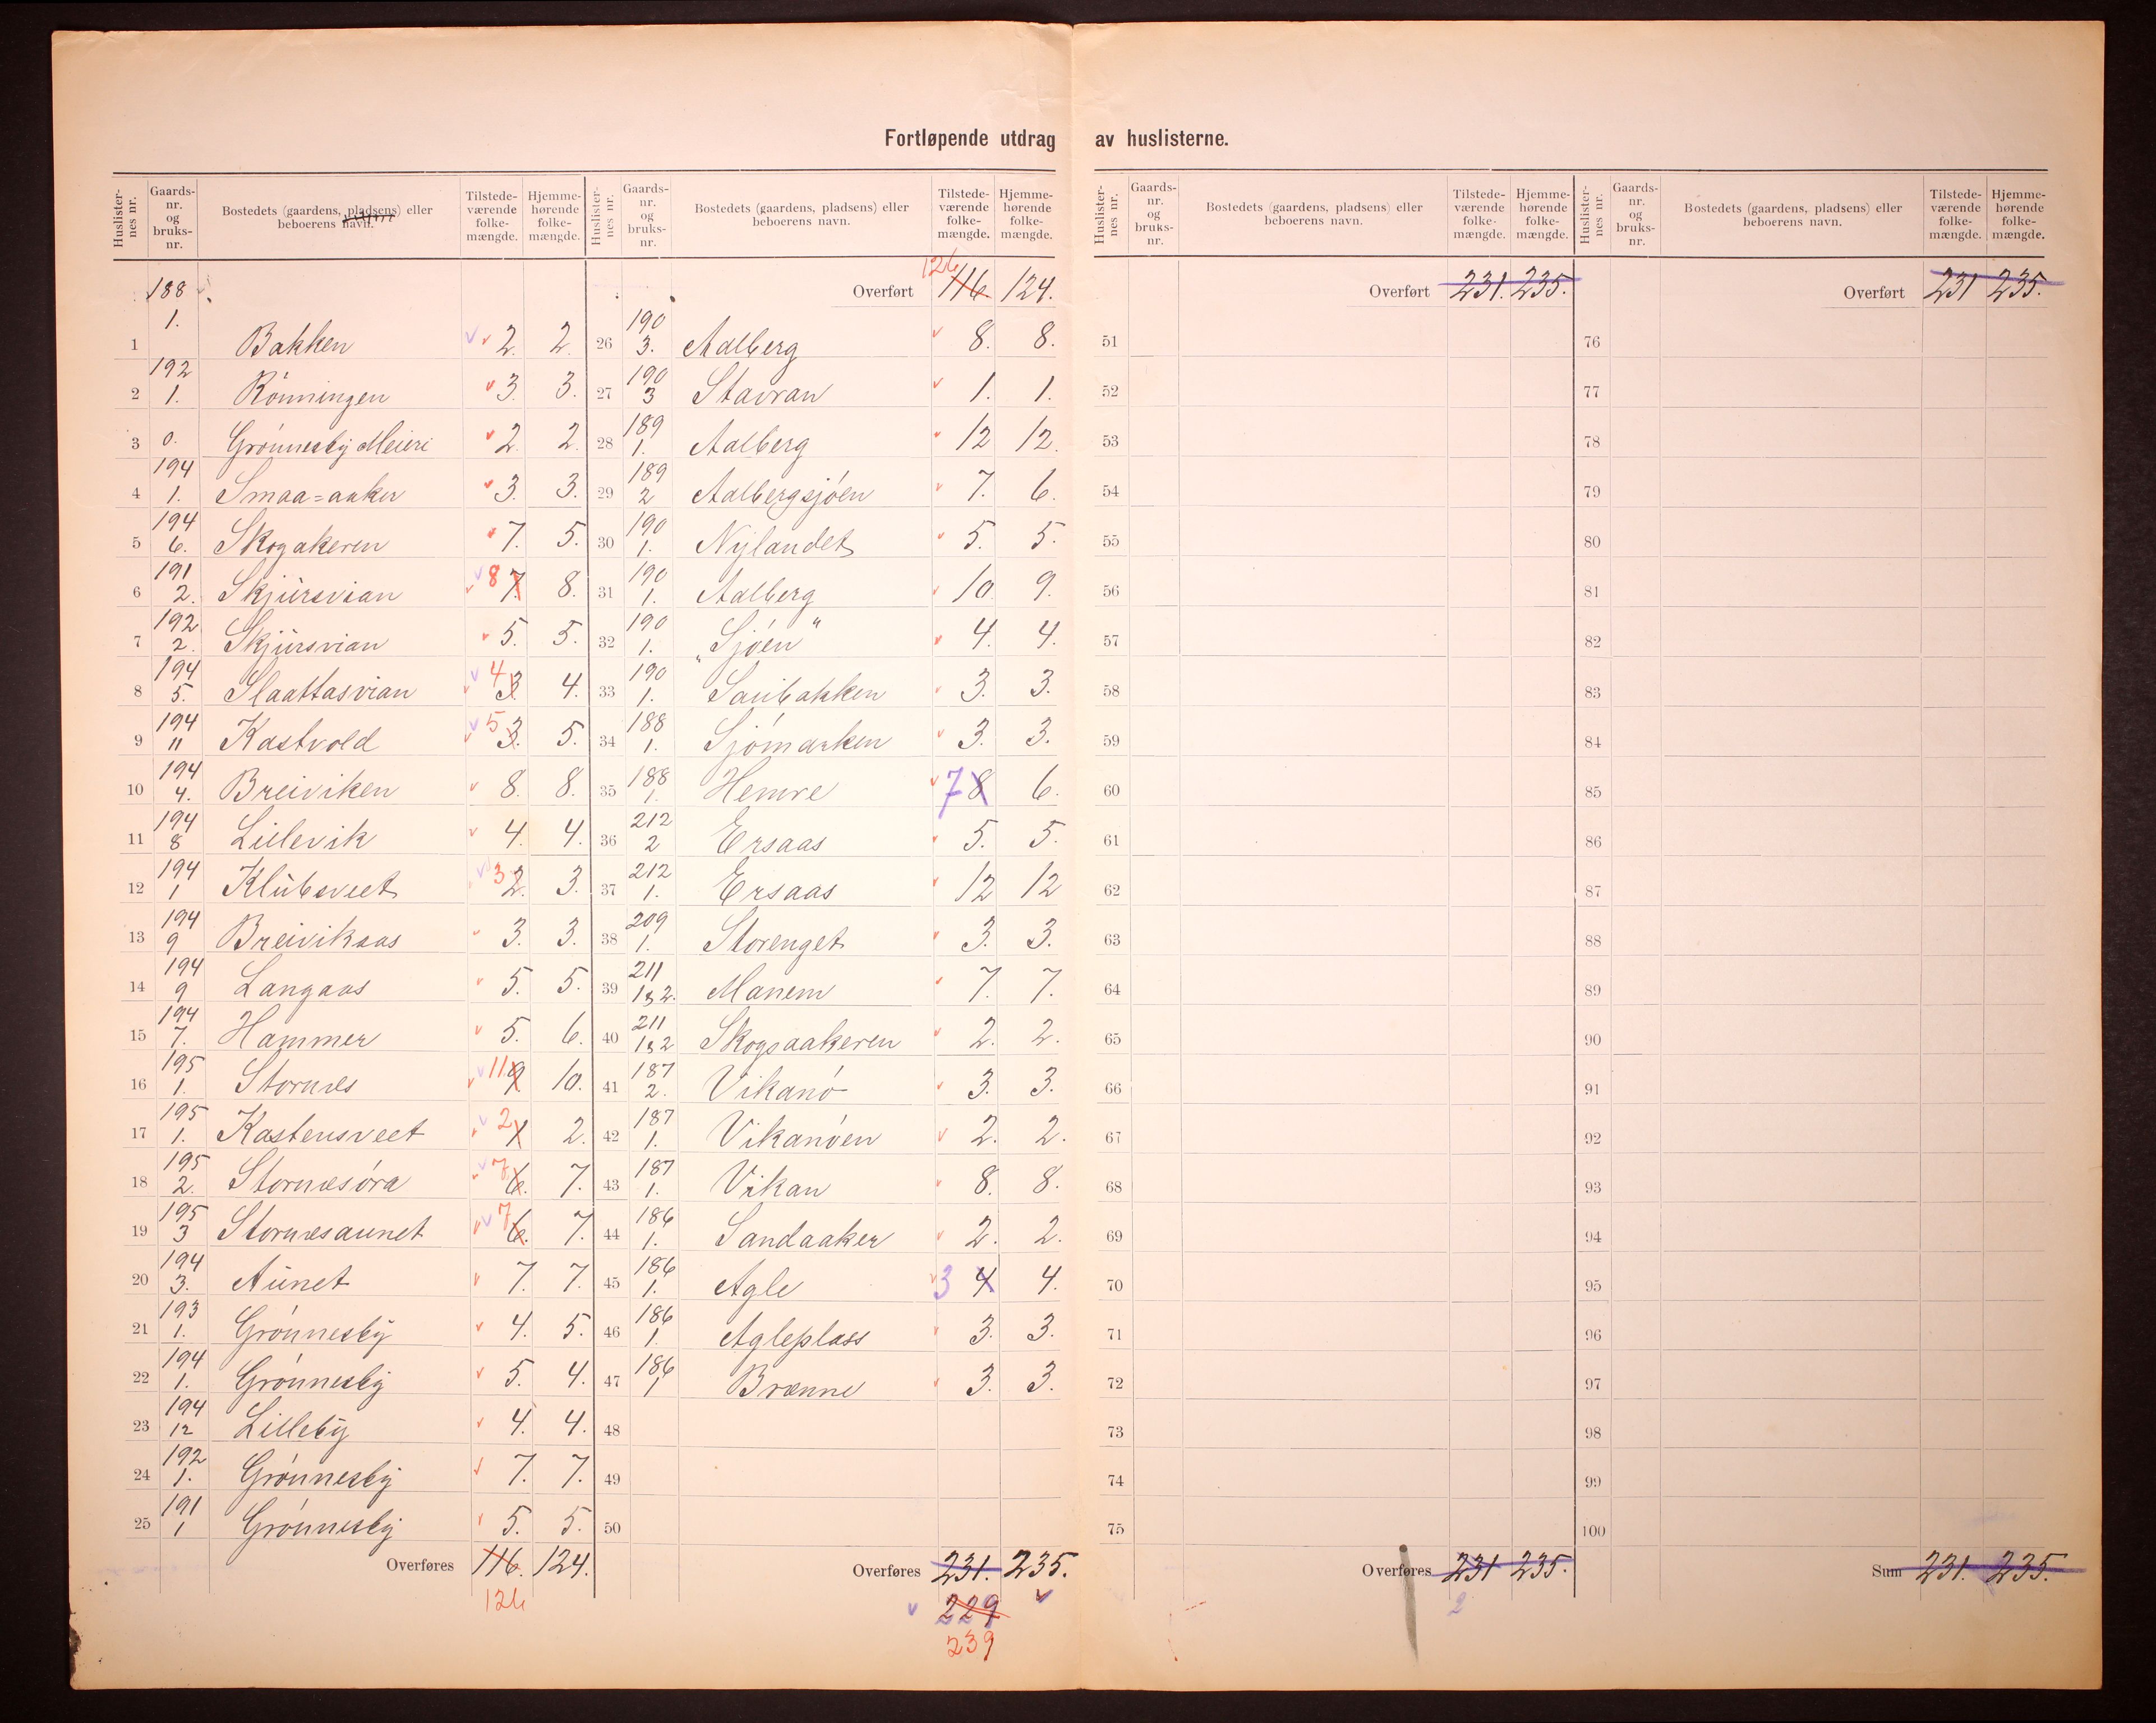 Fortløpende utdrag av huslisterne.
Huslisternes nr. Gaardsnr. og bruksnr. Bostedets (gaardens, pladsens) eller beboerens navn. Tilstedeværende folkemængde. Hjemmehørende folkemængde.
188
1 1. Bakken 2. 2.
2 192 1. Rönningen 3. 3.
3 0. Grönnesby Meieri 2. 2.
4 194 1. Smaa=aaker 3. 3.
5 194 6. Skogakeren 7. 5.
6 191 2. Skjürsvian 8 7. 8.
7 192 2. Skjürsvian 5. 5.
8 194 5. Slaattasvian 4 3. 4.
9 194 11 Kastvold 5 3. 5.
10 194 4. Breiviken 8. 8.
11 194 8 Lillevik 4. 4.
12 194 1 Klübsveet 3 2. 3.
13 194 9 Breiviksaas 3. 3.
14 194 9 Langaas 5. 5.
15 194 7. Hammer 5. 6.
16 195 1. Stornes 11 9 10.
17 195 1. Kastensveet 2 1 2.
18 195 2. Stornesöra 7 6. 7.
19 195 3 Stornesaunet 7 6. 7.
20 194 3. Aünet 7. 7.
21 193 1. Grönnesby 4. 5.
22 194 1. Grönnesby 5. 4.
23 194 12 Lilleby 4. 4.
24 192 1. Grönnesby 7. 7.
25 191 1 Grönnesby 5. 5.
Overføres 116. 124.
126
Huslisternes nr. Gaardsnr. og bruksnr. Bostedets (gaardens, pladsens) eller beboerens navn. Tilstedeværende folkemængde. Hjemmehørende folkemængde.
126
Overført 116 124.
26 190 3. Aalberg 8. 8.
27 190 3 Stavran 1. 1.
28 189 1. Aalberg 12 12.
29 189 2 Aalbergsjöen 7. 6.
30 190 1. Nylandet 5. 5.
31 190 1. Aalberg 10 9.
32 190 1. „Sjöen" 4. 4.
33 190 1. Saubakken 3. 3.
34 188 1. Sjömarken 3. 3.
35 188 1. Hemre 7 8 6.
36 212 2 Ersaas 5. 5.
37 212 1. Ersaas 12 12
38 209 1. Storenget 3. 3.
39 211 1&2. Manem 7. 7.
40 211 1&2 Skogsaakeren 2. 2.
41 187 2. Vikanö 3. 3.
42 187 1. Vikanöen 2. 2.
43 187 1. Vikan 8. 8.
44 186 1. Sandaaker 2. 2.
45 186 1. Agle 3 4 4.
46 186 1. Agleplass 3. 3.
47 186 1 Brænne 3. 3.
48
49
50
Overføres 231. 235.
229
239
Huslisternes nr. Gaardsnr. og bruksnr. Bostedets (gaardens, pladsens) eller beboerens navn. Tilstedeværende folkemængde. Hjemmehørende folkemængde.
Overført 231. 235.
51
52
53
54
55
56
57
58
59
60
61
62
63
64
65
66
67
68
69
70
71
72
73
74
75
Overføres 231 235.
2
Huslisternes nr. Gaardsnr. og bruksnr. Bostedets (gaardens, pladsens) eller beboerens navn. Tilstedeværende folkemængde. Hjemmehørende folkemængde.
Overført 231 235.
76
77
78
79
80
81
82
83
84
85
86
87
88
89
90
91
92
93
94
95
96
97
98
99
100
Sum 231. 235.